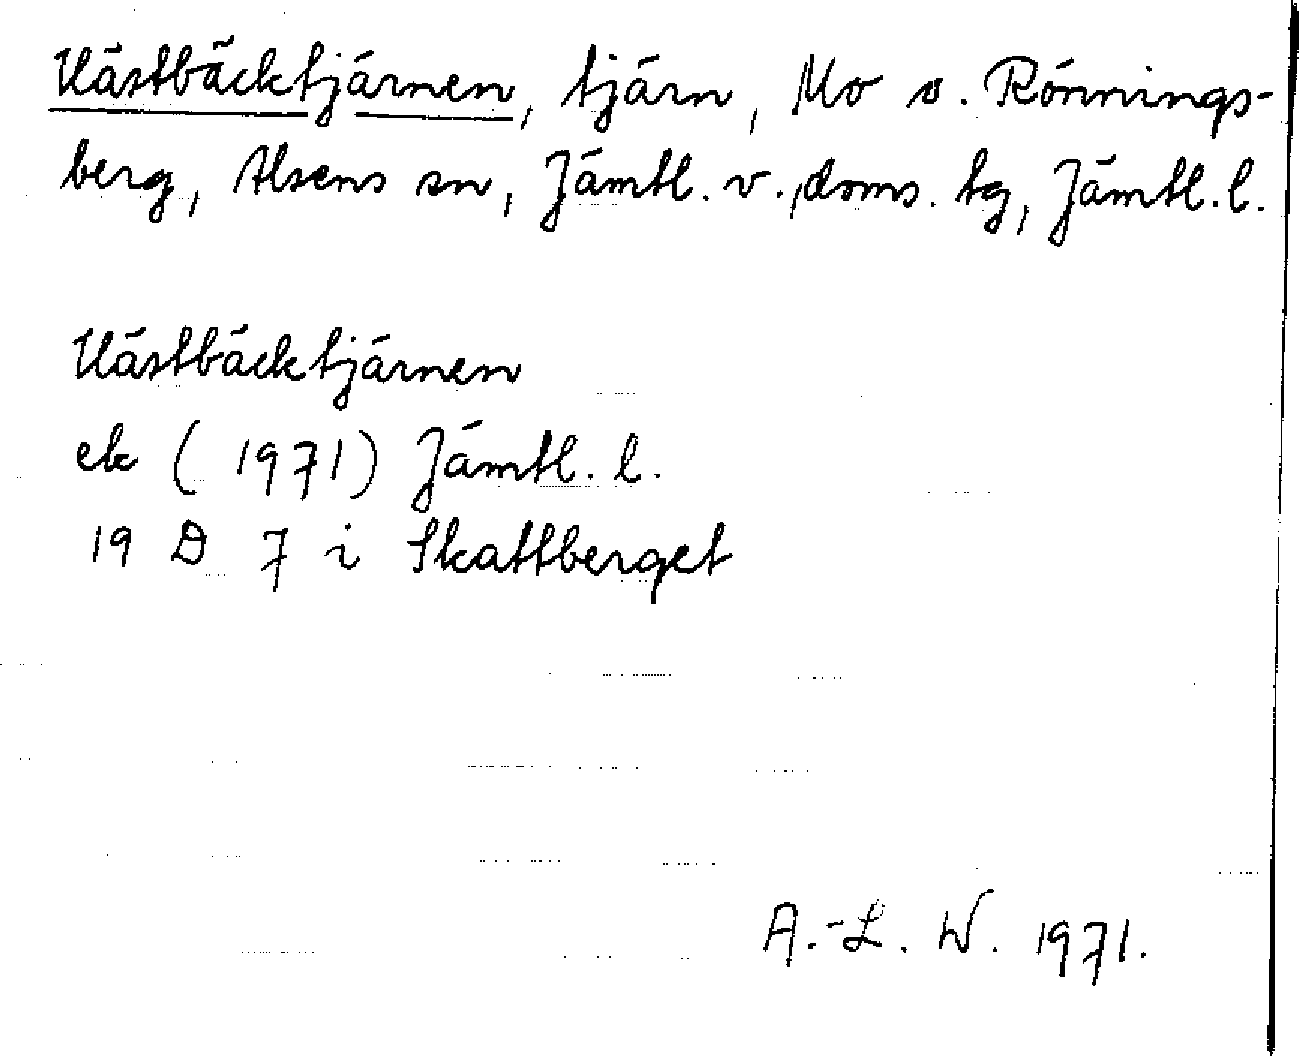 Västbäcktjärnen, tjärn, Mo o. Rönnings-
berg, Alsens sn, Jämtl. v. doms. tg, Jämtl. l.
Västbäcktjärnen
ek (1971) Jämtl. l.
19 D 7 i Skattberget
A.-L. W. 1971.